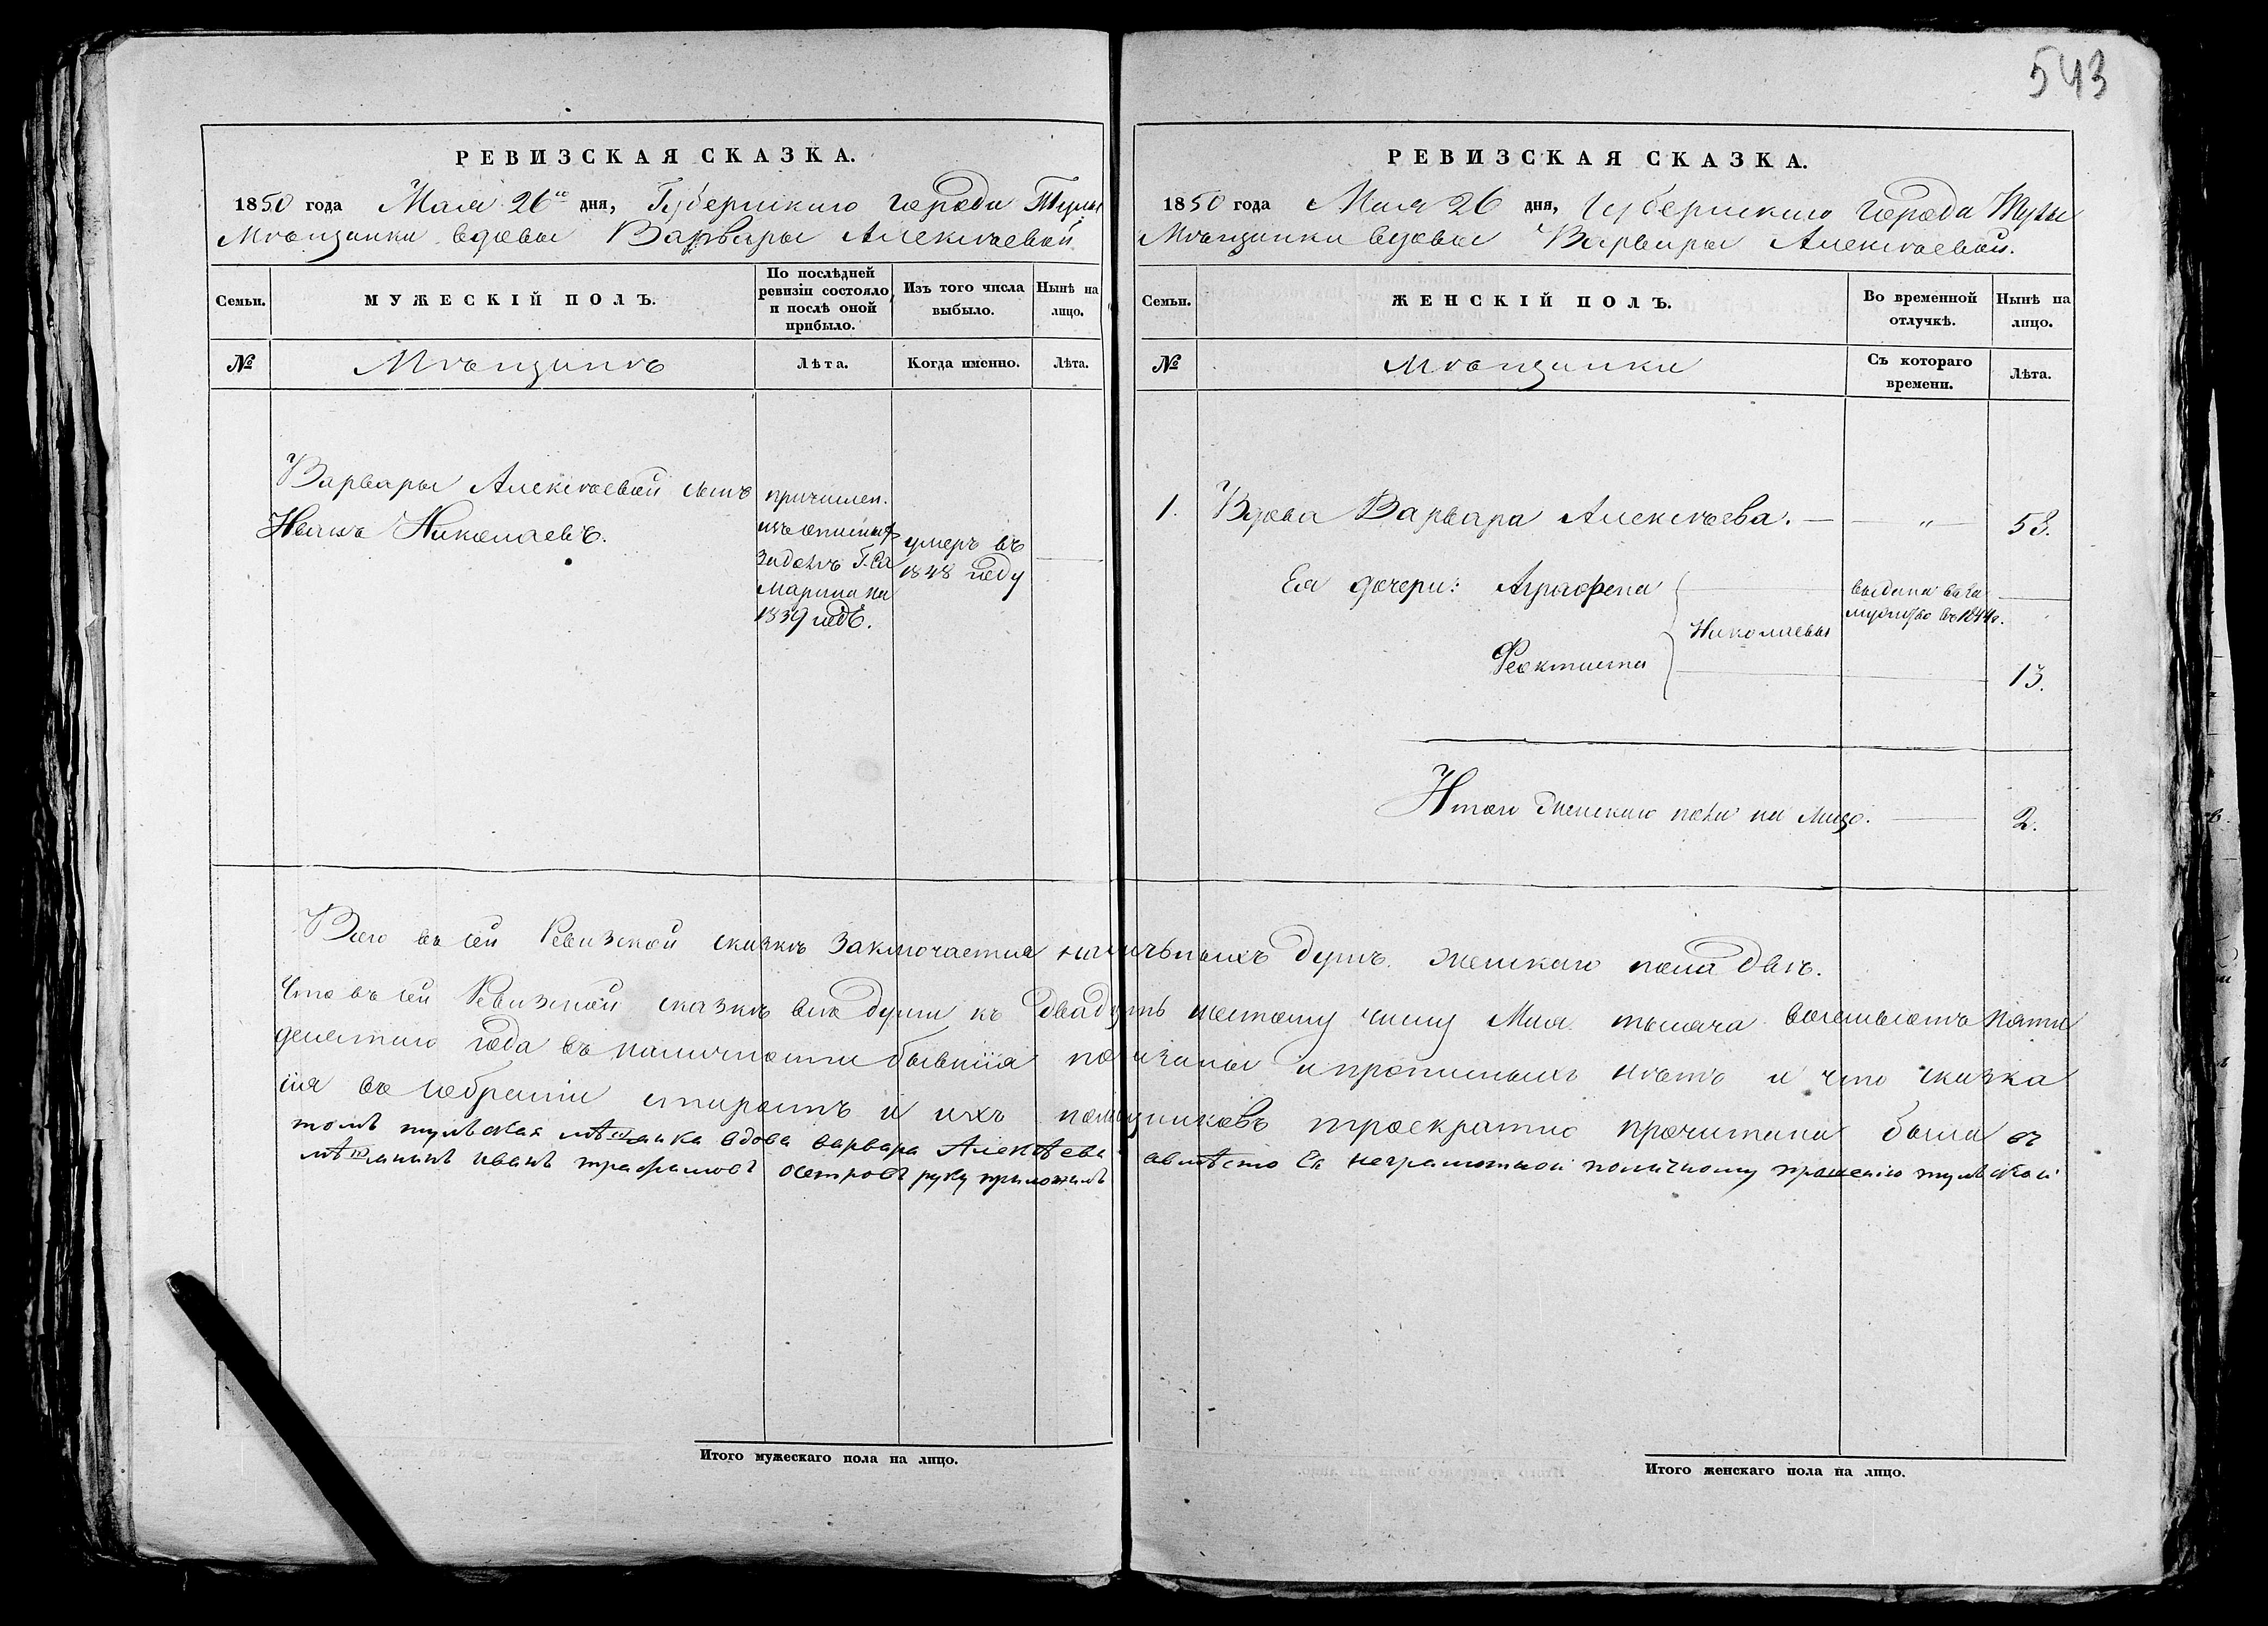 543
РЕВИЗСКАЯ СКАЗКА.
1850 года Мая 26го дня, Губернскаго города Тулы
Мѣщанки вдовы Варвары Алексѣевой.
Семьи.
МУЖЕСКІЙ ПОЛЪ.
По послѣдней
ревизіи состояло
и послѣ оной
прибыло.
Изъ того числа
выбыло.
Нынѣ на
лицо.
№
Мѣщанѣ
Лѣта.
Когда именно.
Лѣта.
Варвары Алексѣевой сынъ
Иванъ Николаевъ.
причислен.
изъ
1839 годѣ.
умеръ въ
1848 году
РЕВИЗСКАЯ СКАЗКА.
1850 года Мая 26 дня, Губернскаго города Тулы
Мѣщанки вдовы Варвары Алексѣевой.
Семьи.
ЖЕНСКІЙ ПОЛЪ.
Во временной
отлучкѣ.
Нынѣ на
лицо.
№
Мѣщанки
Съ котораго
времени.
Лѣта.
1. Вдова Варвара Алексѣева. — — „ — 53.
Ея дочери: Аграфена
выдана въ за
мужство въ 1844г.
Николаевы
Феоктиста
13.
Итого женскаго пола на лицо. — 2.
Всего въ сей Ревизской сказкѣ заключается наличныхъ душъ женскаго пола двѣ.
Что въ сей Ревизской сказкѣ всѣ души къ двадцать шестому числу Мая тысяча восемьсотъ пяти
десятаго года въ наличности бывшія показаны и прописныхъ нѣтъ и что сказка
сія въ собраніи старостъ и ихъ помощниковъ троекратно прочитана была въ
томъ тульская мѣщанка вдова варвара Алексѣева авмѣсто Ея неграмотной поличному прошенію тульской
мѣщанинъ иванъ трафимовъ осетровъ руку приложилъ
Итого мужескаго пола на лицо.
Итого женскаго пола на лицо.